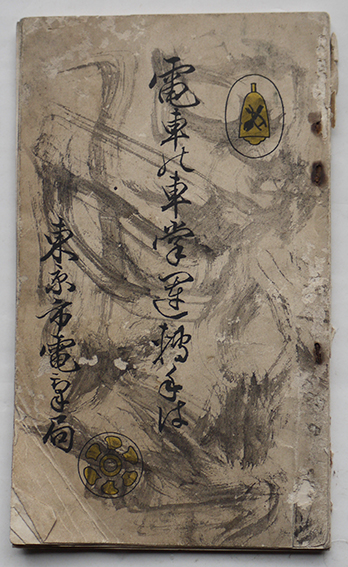 電車の車掌運轉手は
東京市電氣局